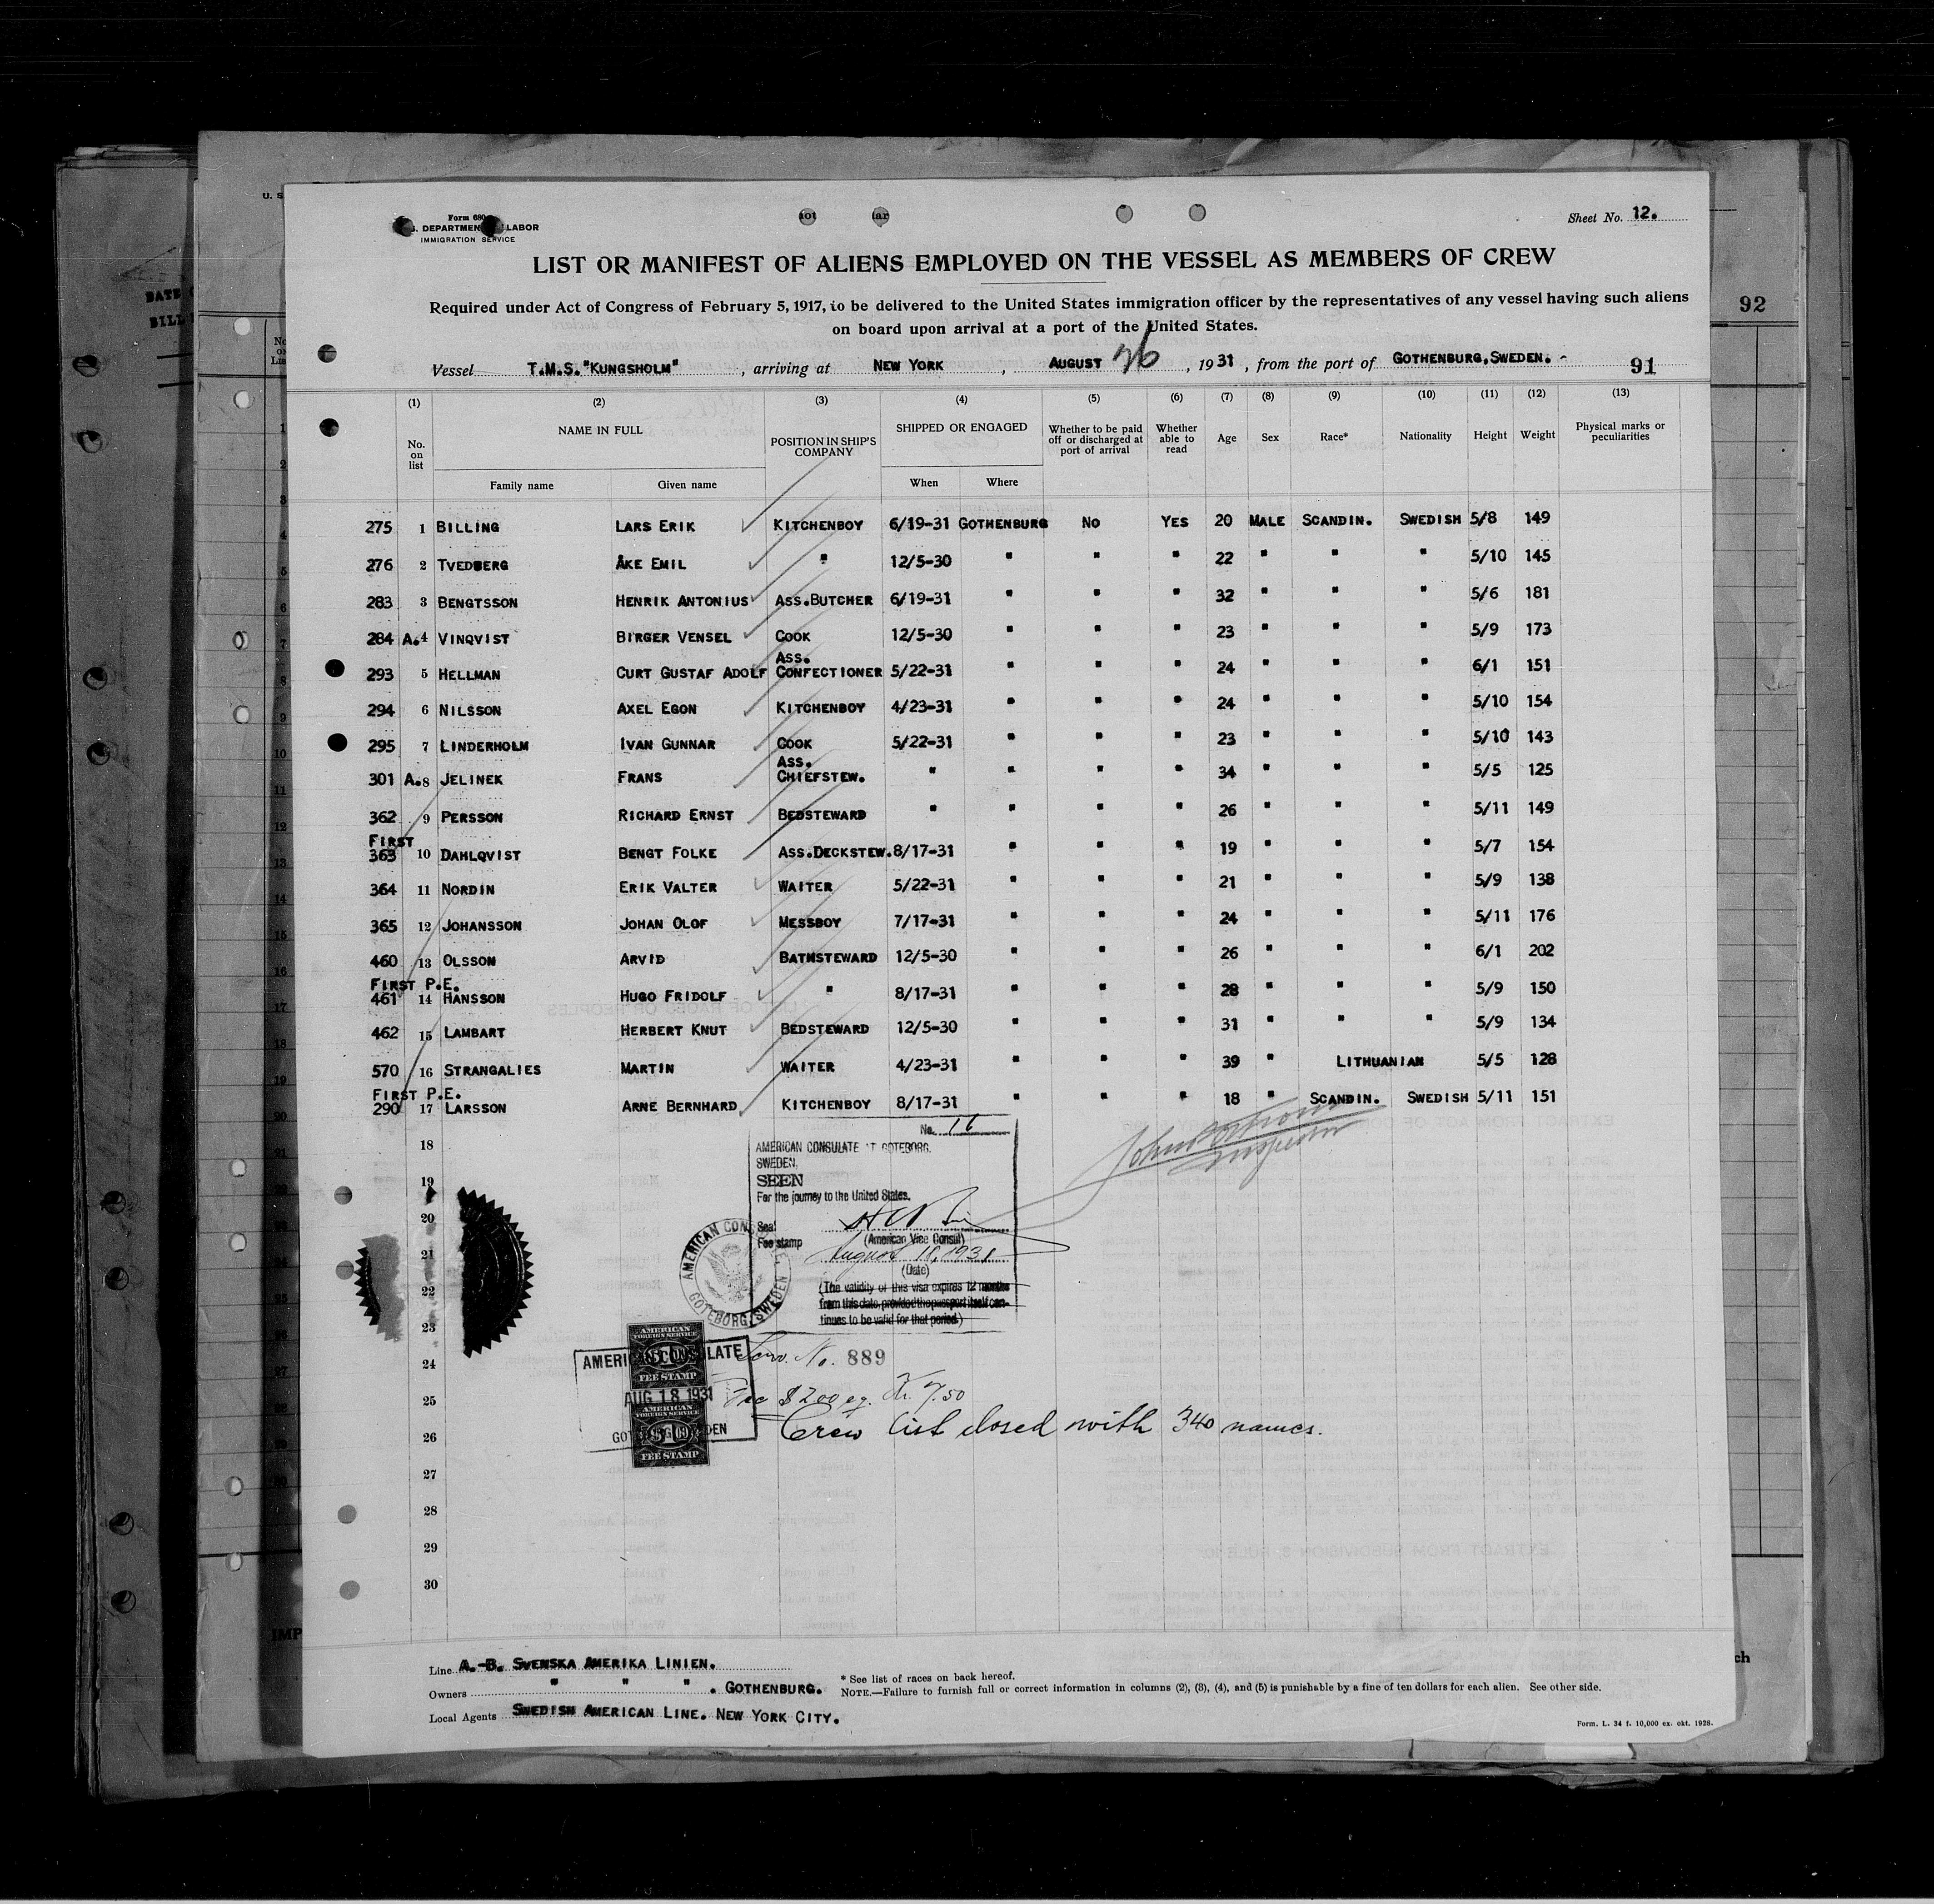 Form 680
U. S. DEPARTMENT LABOR
IMMIGRATION SERVICE
Sheet No. 12.
LIST OR MANIFEST OF ALIENS EMPLOYED ON THE VESSEL AS MEMBERS OF CREW
Required under Act of Congress of February 5, 1917, to be delivered to the United States immigration officer by the representatives of any vessel having such aliens
on board upon arrival at a port of the United States.
92
Vessel T.M.S. "KUNGSHOLM", arriving at NEW YORK, AUGUST 26, 1931, from the port of GOTHENBURG, SWEDEN. - 91
(1) (2) (3) (4) (5) (6) (7) (8) (9) (10) (11) (12) (13)
No. on list NAME IN FULL Family name Given name POSITION IN SHIP'S COMPANY SHIPPED OR ENGAGED When Where Whether to be paid off or discharged at port of arrival Whether able to read Age Sex Race* Nationality Height Weight Physical marks or peculiarities
275 1 BILLING LARS ERIK KITCHENBOY 6/19-31 GOTHENBURG NO YES 20 MALE SCANDIN. SWEDISH 5/8 149
276 2 TVEDBERG ÅKE EMIL " 12/5-30 " " " 22 " " " 5/10 145
283 3 BENGTSSON HENRIK ANTONIUS ASS.BUTCHER 6/19-31 " " " 32 " " " 5/6 181
284 A. 4 VINQVIST BIRGER VENSEL COOK 12/5-30 " " " 23 " " " 5/9 173
293 5 HELLMAN CURT GUSTAF ADOLF ASS. CONFECTIONER 5/22-31 " " " 24 " " " 6/1 151
294 6 NILSSON AXEL EGON KITCHENBOY 4/23-31 " " " 24 " " " 5/10 154
295 7 LINDERHOLM IVAN GUNNAR COOK 5/22-31 " " " 23 " " " 5/10 143
301 A. 8 JELINEK FRANS ASS. CHIEFSTEW. " " " " 34 " " " 5/5 125
362 9 PERSSON RICHARD ERNST BEDSTEWARD " " " " 26 " " " 5/11 149
FIRST
363 10 DAHLQVIST BENGT FOLKE ASS.DECKSTEW. 8/17-31 " " " 19 " " " 5/7 154
364 11 NORDIN ERIK VALTER WAITER 5/22-31 " " " 21 " " " 5/9 138
365 12 JOHANSSON JOHAN OLOF MESSBOY 7/17-31 " " " 24 " " " 5/11 176
460 13 OLSSON ARVID BATHSTEWARD 12/5-30 " " " 26 " " " 6/1 202
FIRST P.E.
461 14 HANSSON HUGO FRIDOLF " 8/17-31 " " " 28 " " " 5/9 150
462 15 LAMBART HERBERT KNUT BEDSTEWARD 12/5-30 " " " 31 " " " 5/9 134
570 16 STRANGALIES MARTIN WAITER 4/23-31 " " " 39 " LITHUANIAN 5/5 128
FIRST P.E.
290 17 LARSSON ARNE BERNHARD KITCHENBOY 8/17-31 " " " 18 " SCANDIN. SWEDISH 5/11 151
18
19
20
21
22
23
24
25
26
27
28
29
30
No. 16
AMERICAN CONSULATE AT GOTEBORG,
SWEDEN,
SEEN
For the journey to the United States.
Seal
(American Vice Consul)
Fee stamp
August 18, 1931
(Date)
(The validity of this visa expires 12 months
from this date, provided the passport itself con-
tinues to be valid for that period.)
AMERICAN CONSULATE GOTEBORG, SWEDEN
Inspector
Serv. No. 889
AMERICAN FOREIGN SERVICE
$1
FEE STAMP
AMERICAN CONSULATE
AUG 18 1931
GOTEBORG, SWEDEN
AMERICAN FOREIGN SERVICE
$1
FEE STAMP
Fee $2.00 eq. Kr. 7.50
Crew list closed with 340 names.
Line A.-B. SVENSKA AMERIKA LINIEN.
Owners " " " . GOTHENBURG.
Local Agents SWEDISH AMERICAN LINE. NEW YORK CITY.
* See list of races on back hereof.
NOTE.—Failure to furnish full or correct information in columns (2), (3), (4), and (5) is punishable by a fine of ten dollars for each alien. See other side.
Form. L. 34 f. 10,000 ex. okt. 1928.